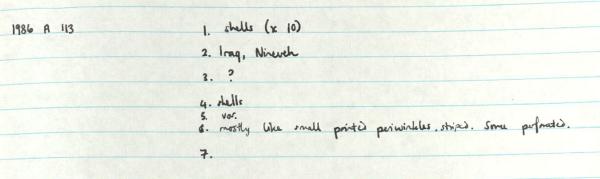 1986 A 113 1. shells (x 10)
2. Iraq, Nineveh
3. ?
4. shells
5. var.
6. mostly like small pointed periwinkles. striped. Some perforated.
7.